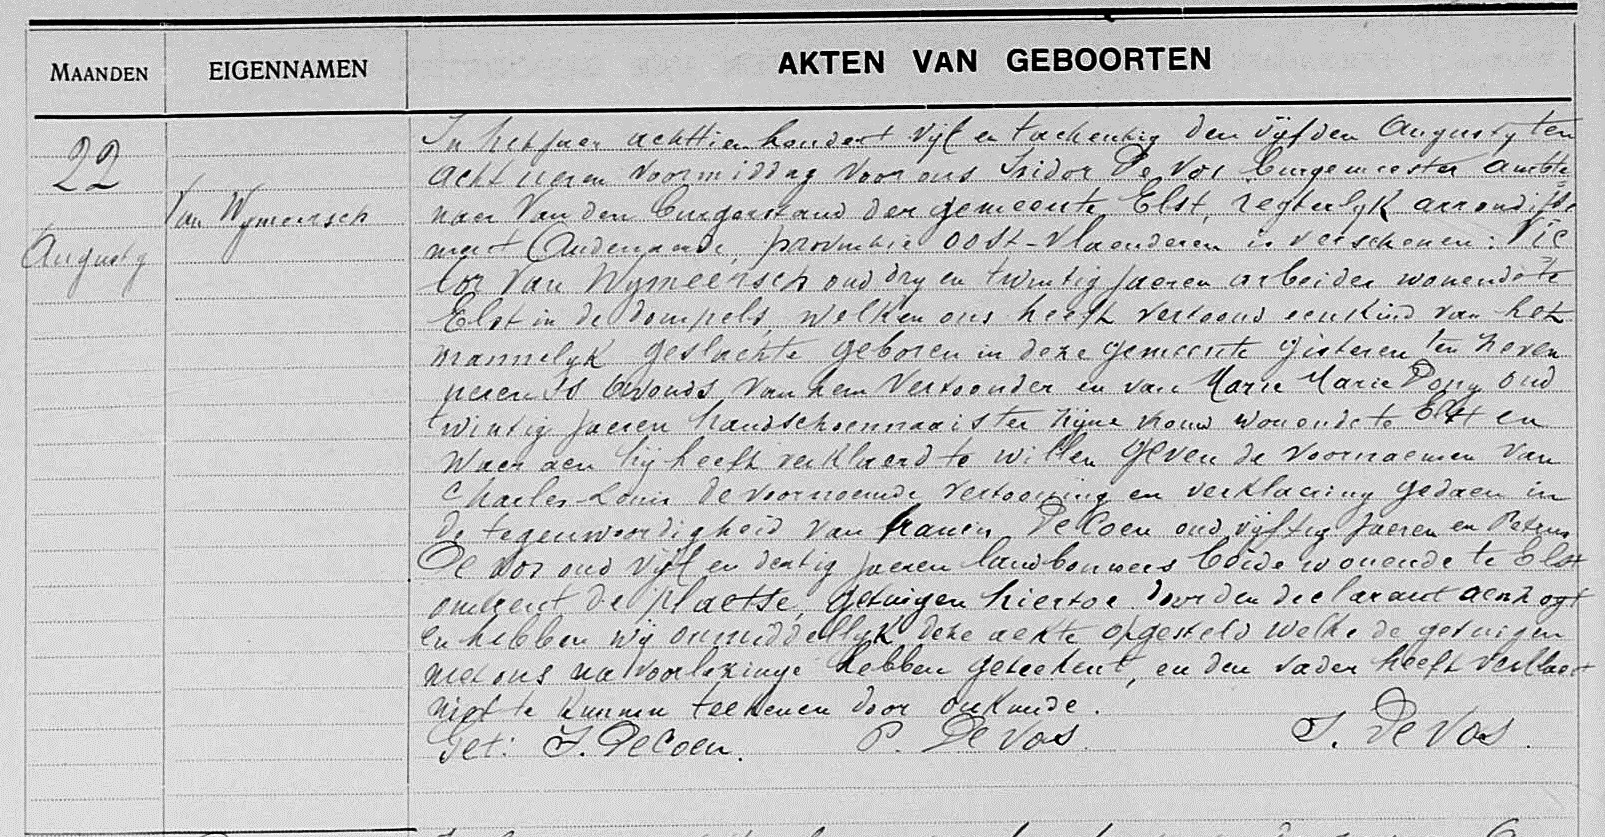 MAANDEN EIGENNAMEN AKTEN VAN GEBOORTEN
22
Augusty
Van Wymeersch
In het jaer achttien hondert vijf en tachentig den vijfden Augusty ten
acht ueren voormiddag voor ons Isidor De Vos burgemeester ambte
naer van den burgerstand der gemeente Elst, regterlyk arrondisse
ment Audenaerde, provintie Oost-Vlaenderen is verschenen: Vic
tor Van Wymeersch oud dry en twintig jaeren arbeider wonende te
Elst in de dompels, welken ons heeft vertoond een kind van het
mannelyk geslachte geboren in deze gemeente gisteren ten zeven
ueren 's avonds van hem vertoonder en van Marie Marie Pony oud
twintig jaeren handschoennaaister zijne vrouw wonende te Elst en
waer aen hij heeft verklaerd te willen geven de voornaemen van
Charles-Louis de voornoemde vertooning en verklaering gedaen in
de tegenwoordigheid van Francis De Coen oud vijftig jaeren en Petrus
De Vos oud vijf en dertig jaeren landbouwers beide wonende te Elst
omtrent de plaetse, getuigen hiertoe door den declarant aenzogt
en hebben wij onmiddellyk deze aekte opgesteld welke de getuigen
met ons na voorlezinge hebben geteekent, en den vader heeft verklaert
niet te kunnen teekenen door onkunde.
Get: F. De Coen. P. De Vos. I. De Vos.